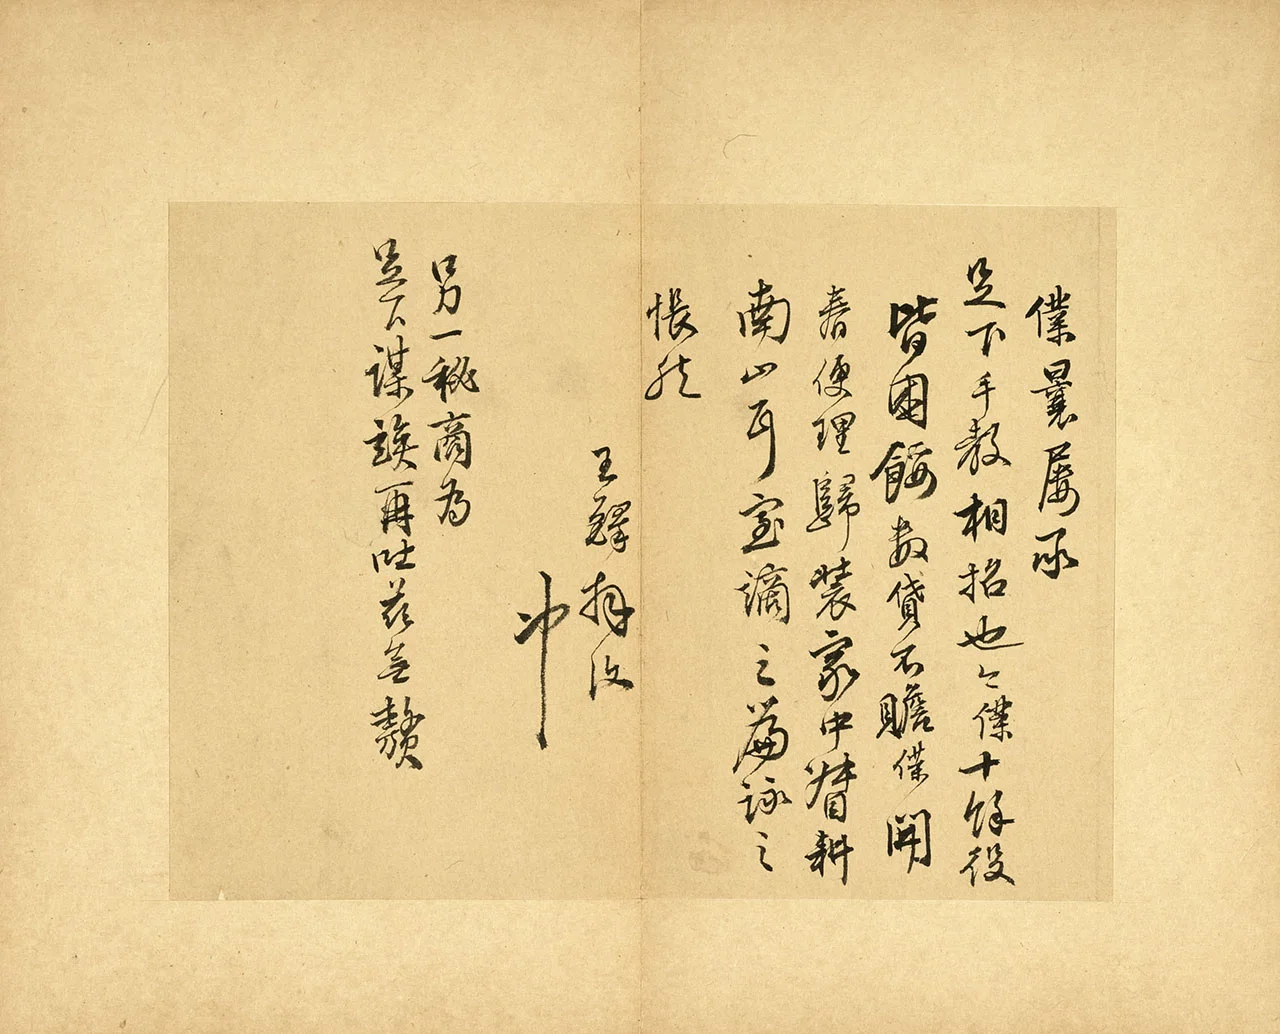 僕曩屢承
足下手教相招也今僕十餘役
皆困餒數貸不贍僕開
春便理歸裝家中督耕
南山耳室謫之篇詠之
悵然
王鐸拜沒
冲
另一秘商為
足下謀談再吐茲無贅